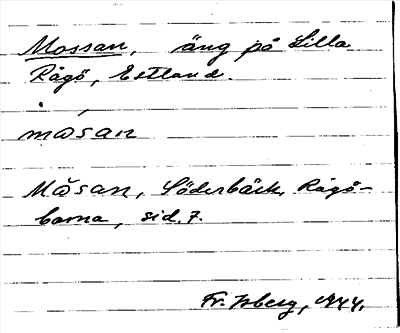 Mossan, äng på Lilla
Rågö, Estland.
måsan
Măsan, Söderbäck, Rågö-
barna, sid. 7.
Fr. Isberg, 1944.